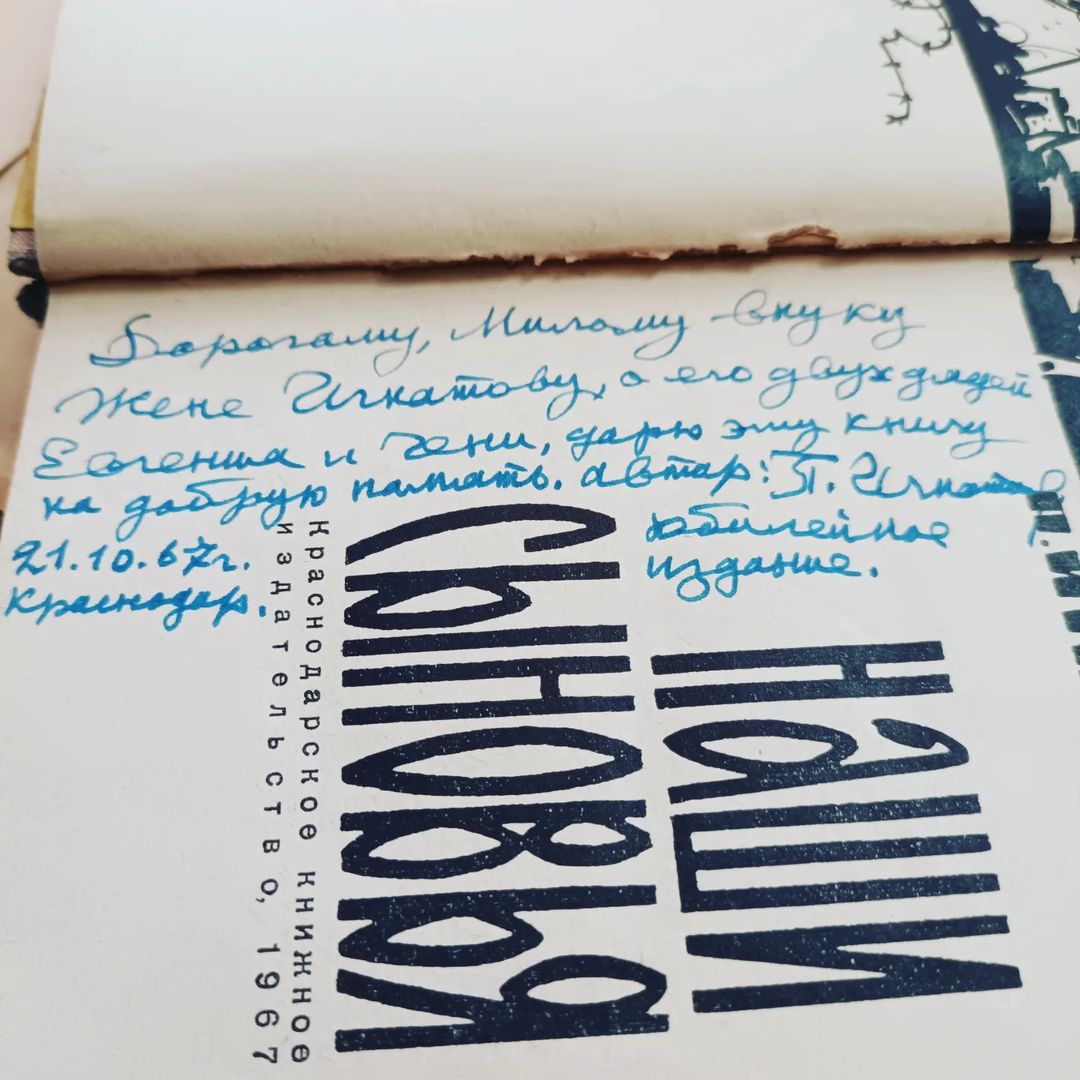 Дорогаму, Милому внуку
Жене Игнатову, о его двух дядей
Евгении и Гени, дарю эту книгу
на добрую память. автар: П. Игнатов
21.10.67г.
Краснодар.
юбилейное
издание.
НАШИ
СЫНОВЬЯ
КРАСНОДАРСКОЕ КНИЖНОЕ
ИЗДАТЕЛЬСТВО, 1967
П. И